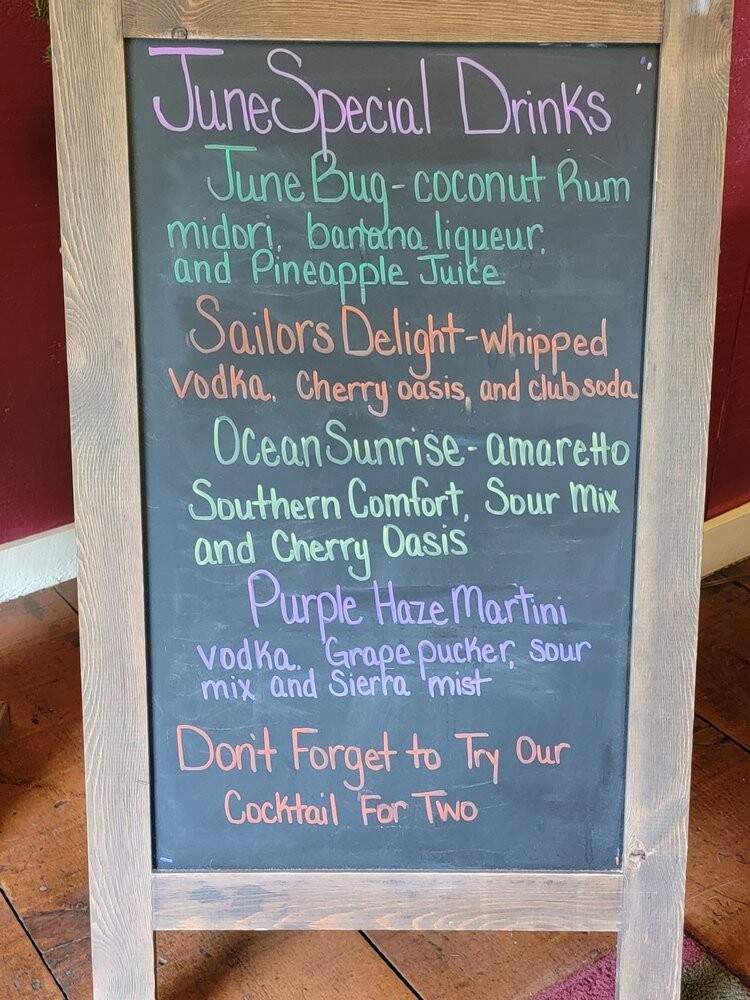 June Special Drinks
June Bug - coconut Rum
midori, banana liqueur,
and Pineapple Juice
Sailors Delight - whipped
vodka, Cherry oasis, and club soda
Ocean Sunrise - amaretto
Southern Comfort, Sour Mix
and Cherry Oasis
Purple Haze Martini
vodka, Grape pucker, sour
mix and Sierra mist
Don't Forget to Try Our
Cocktail For Two